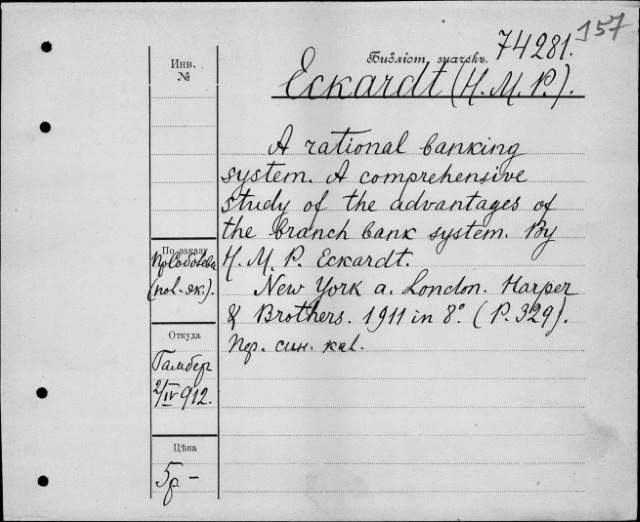 157
74281.
Библіот. значекъ.
Инв.
№
Eckardt (H. M. P.).
A rational banking
system. A comprehensive
study of the advantages of
the branch bank system. By
H. M. P. Eckardt.
New York a. London. Harper
& Brothers. 1911 in 8°. (P. 329).
Пер. син. кал.
По заказу
Пр. Соболева
(пол.-эк.).
Откуда
Гамбер
2/IV 912.
Цѣна
5р –